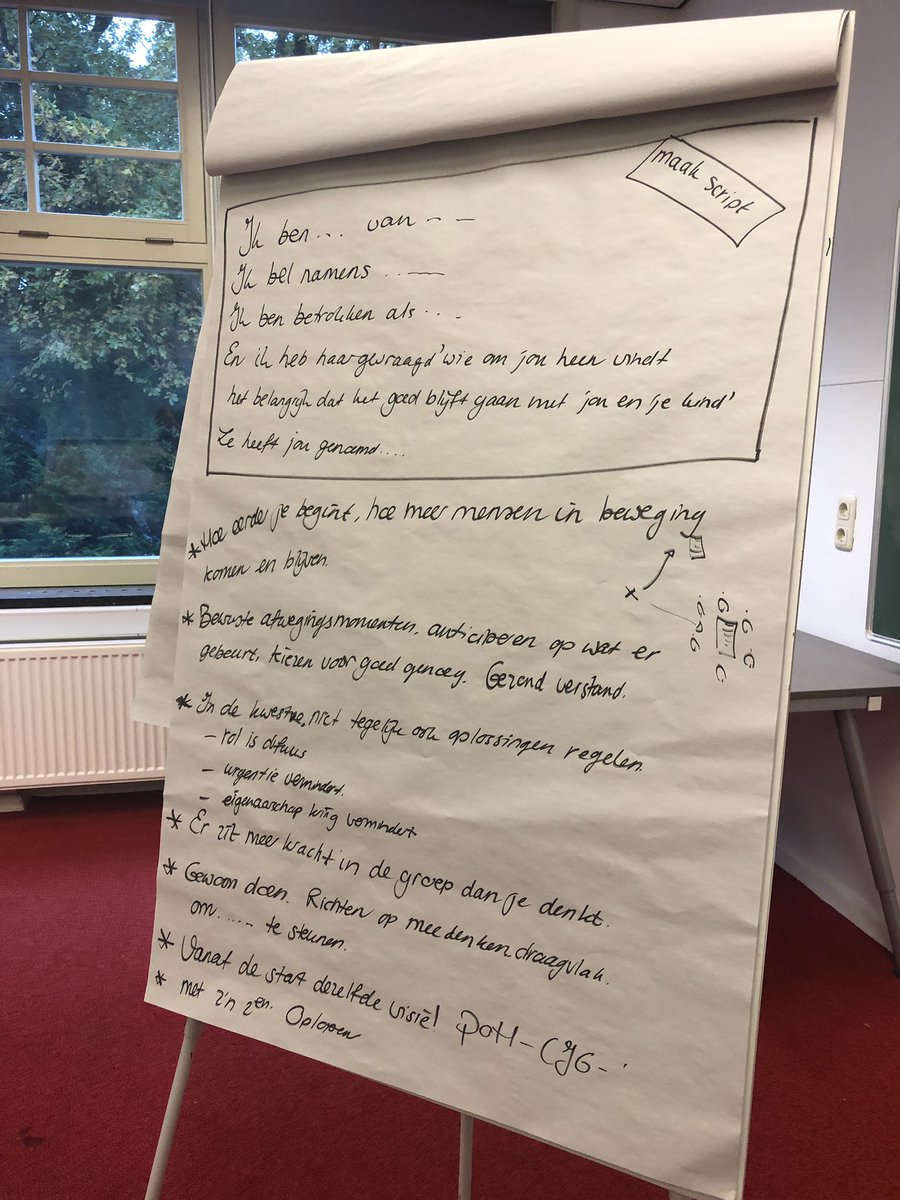 maak script
Ik ben ... van - -
Ik bel namens ..—
Ik ben betrokken als ...
En ik heb haar gevraagd 'wie om jou heen vindt
het belangrijk dat het goed blijft gaan met jou en je kind'
Ze heeft jou genoemd....
* Hoe eerder je begint, hoe meer mensen in beweging
komen en blijven.
* Bewuste afwegingsmomenten, anticiperen op wat er
gebeurt, kiezen voor goed genoeg. Gezond verstand.
* In de kwestie, niet tegelijk ook oplossingen regelen.
- rol is diffuus
- urgentie vermindert.
- eigenaarschap kring vermindert
* Er zit meer kracht in de groep dan je denkt.
* Gewoon doen. Richten op meedenken, draagvlak.
om ..... te steunen.
* Vanaf de start dezelfde visie! POH - CJG -
* met z'n 2en. Oplopen